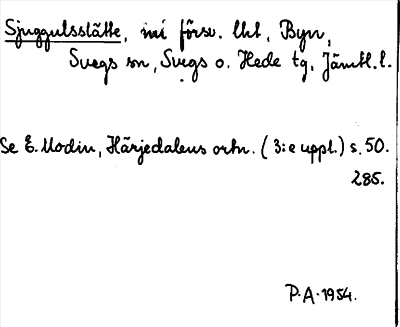 Sjuggulsslätte, mi försv. lht, Byn,
Svegs sn, Svegs o. Hede tg, Jämtl. l.
Se E. Modin, Härjedalens ortn. (3:e uppl.) s. 50.
285.
P.A. 1954.